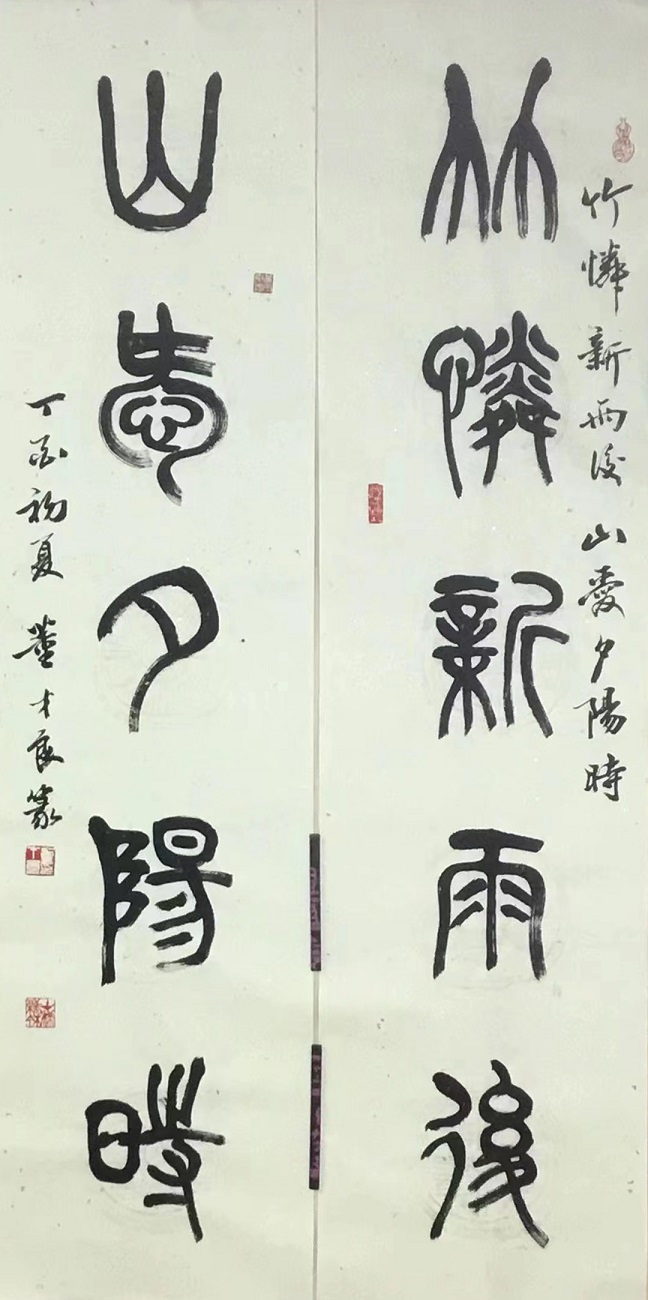 竹憐新雨後
竹憐新雨後山愛夕陽時
山愛夕陽時
丁酉初夏董才良篆